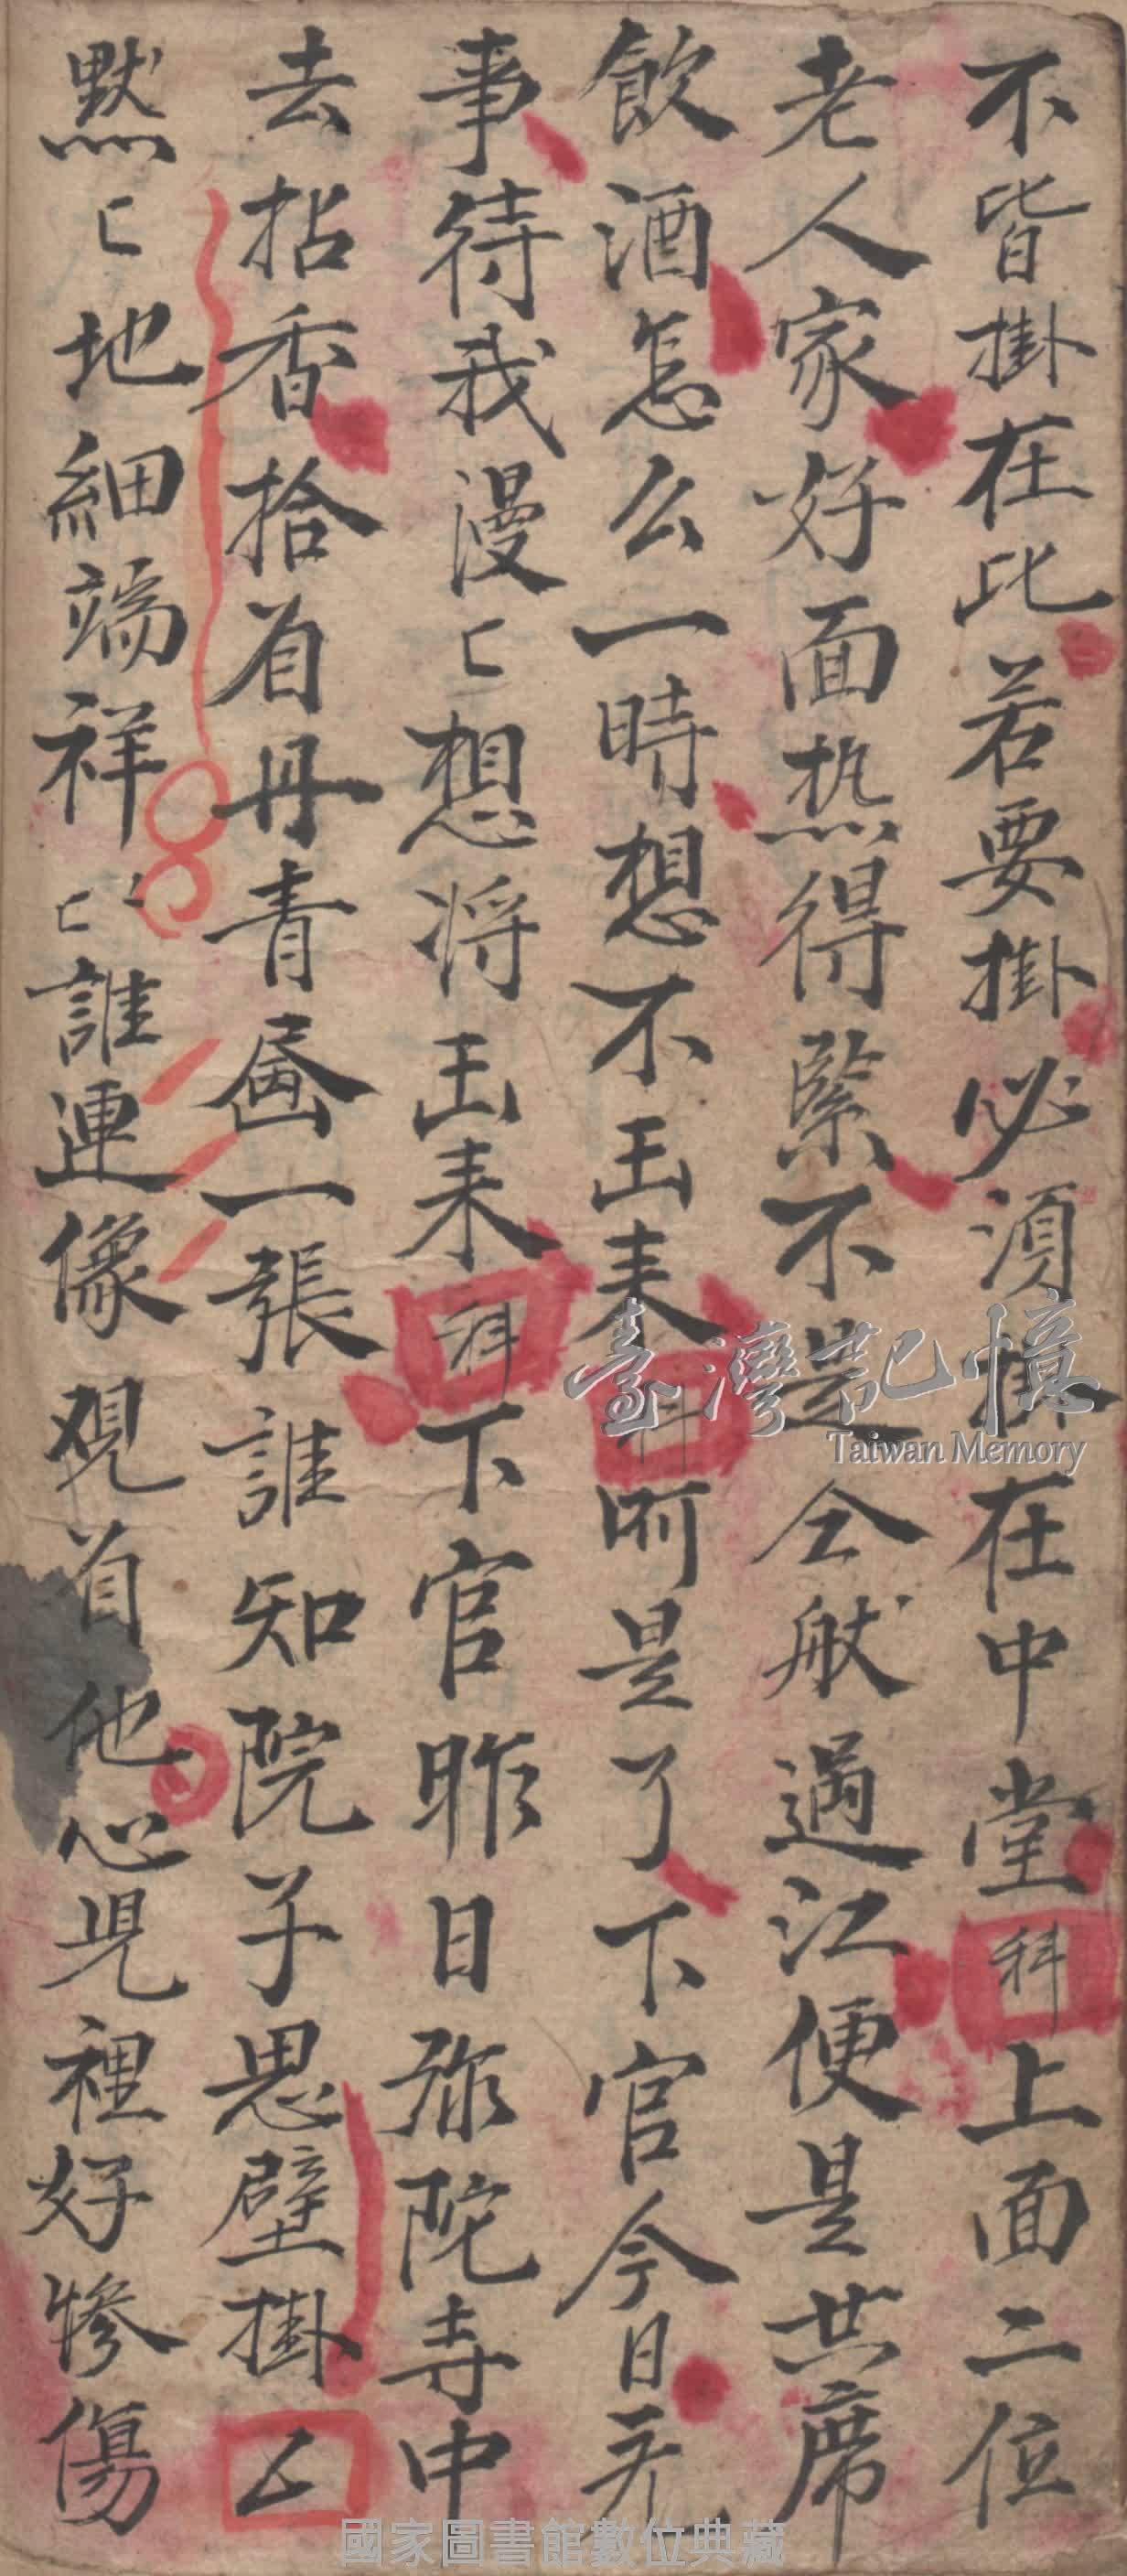 不皆掛在此若要掛必須掛在中堂科上面二位
老人家好面熱得緊不是仝船過江便是共席
飲酒怎么一時想不出來科呵是了下官今日無
事待我漫匕想將出來科下官昨日弥陀寺中
去拈香拾有丹青畫一張誰知院子思壁掛乙
默匕地細端祥匕匕誰連像覌着他心児裡好慘傷
臺灣記憶
Taiwan Memory
國家圖書館數位典藏